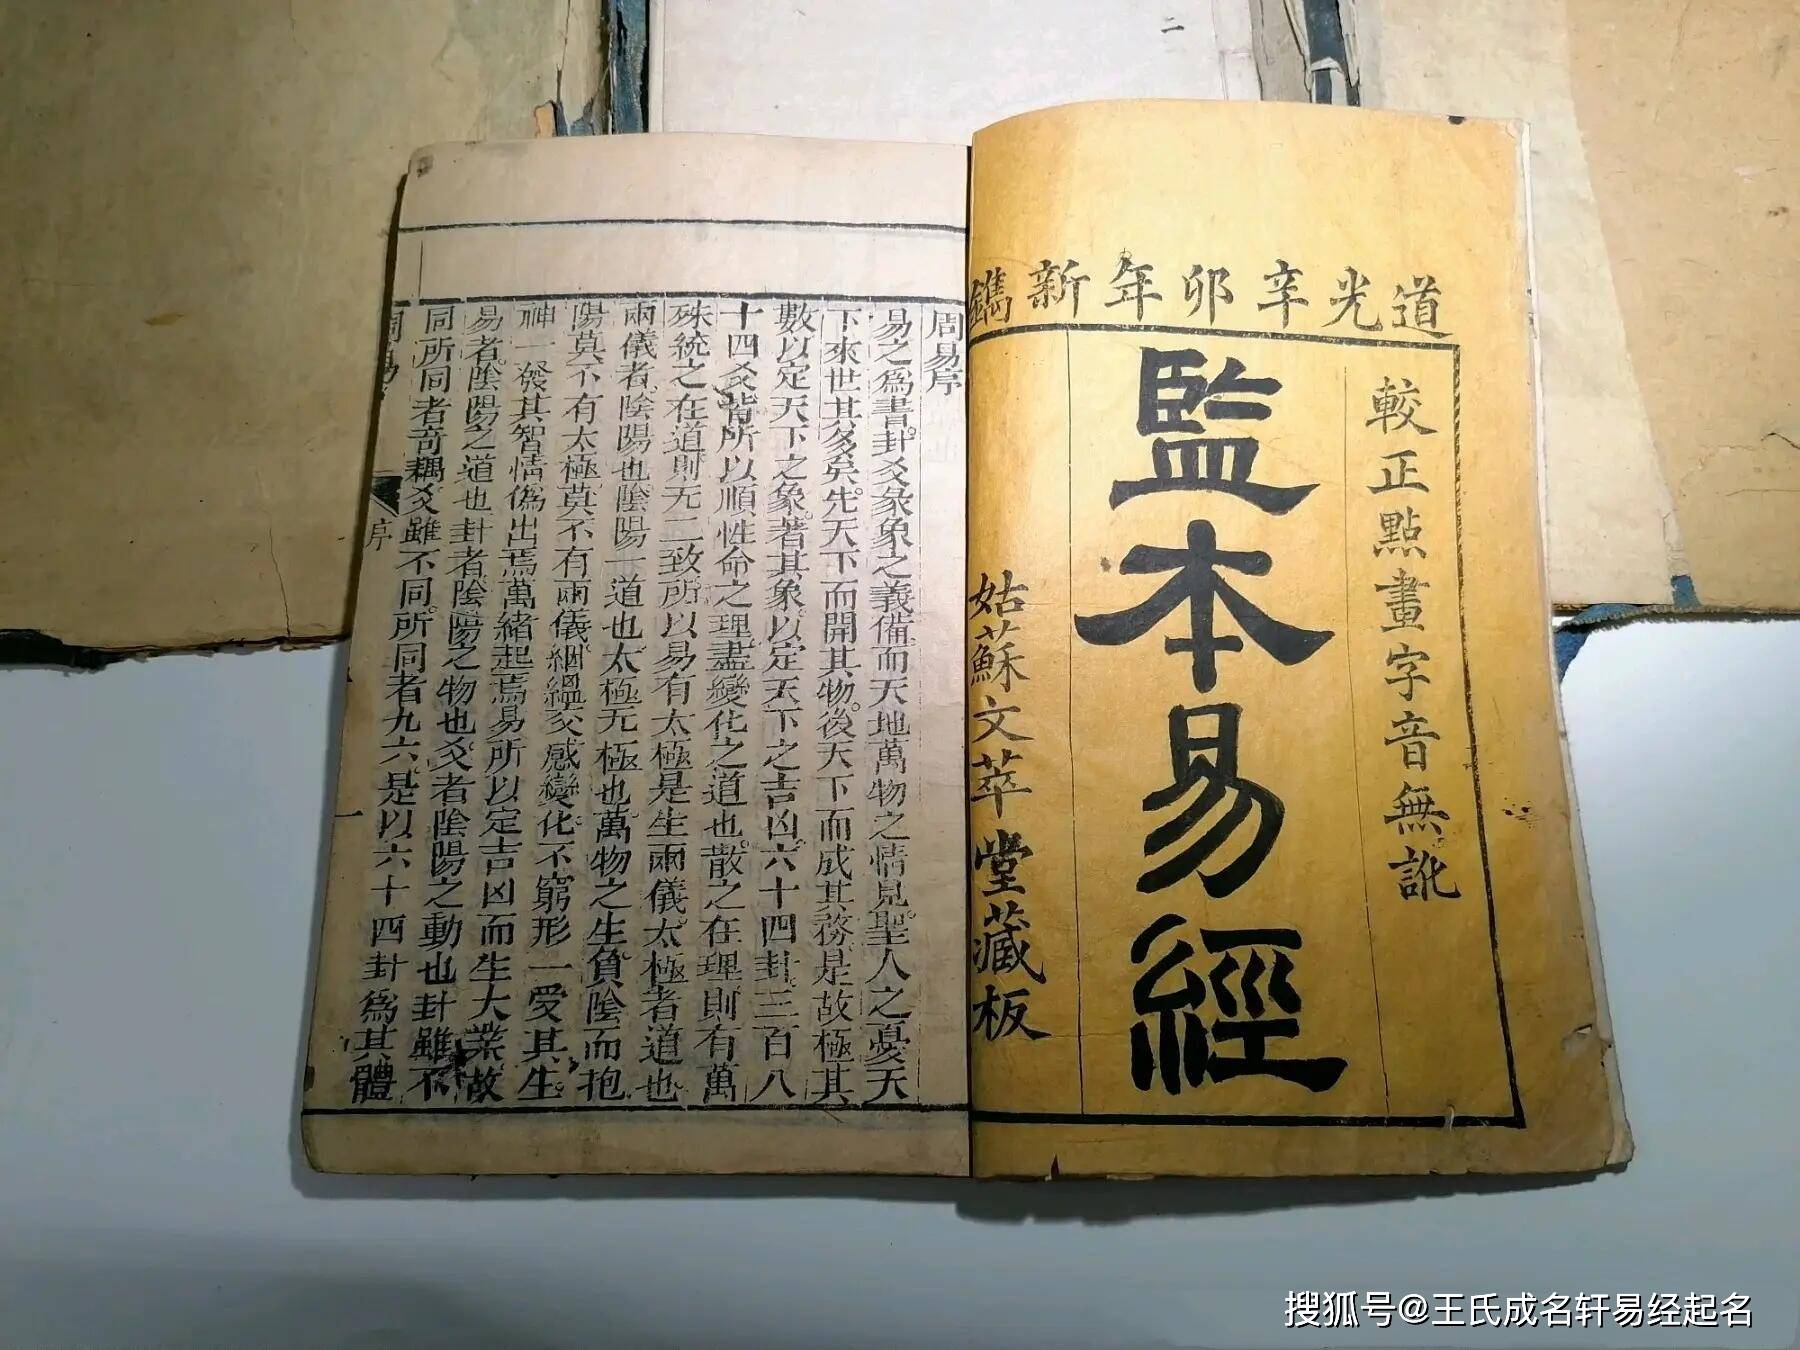 二
道光辛卯年新鐫
較正點畫字音無訛
監本易經
姑蘇文萃堂藏板
周易序
易之為書卦爻彖象之義備而天地萬物之情見聖人之憂天
下來世其多矣先天下而開其物後天下而成其務是故極其
數以定天下之象著其象以定天下之吉凶六十四卦三百八
十四爻皆所以順性命之理盡變化之道也散之在理則有萬
殊統之在道則无二致所以易有太極是生兩儀太極者道也
兩儀者陰陽也陰陽一道也太極无極也萬物之生負陰而抱
陽莫不有太極莫不有兩儀絪縕交感變化不窮形一受其生
神一發其智情偽出焉萬緒起焉易所以定吉凶而生大業故
易者陰陽之道也卦者陰陽之物也爻者陰陽之動也卦雖不
同所同者奇耦爻雖不同所同者九六是以六十四卦為其體
周易
序
一
搜狐号@王氏成名轩易经起名